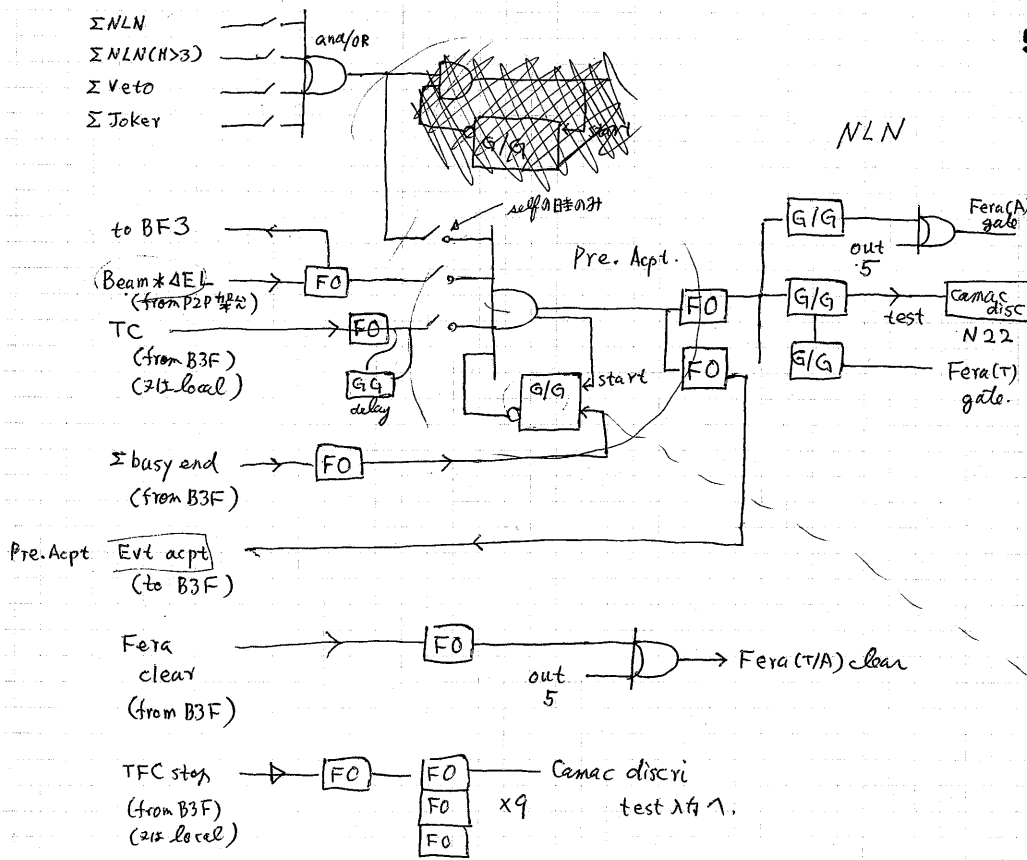 ΣNLN
ΣNLN(H>3)
ΣVeto
ΣJoker
and/OR
G/G
start
NLN
selfの時のみ
to BF3
Beam*ΔEL
(from P2P
FO
TC
(from B3F)
local)
FO
GG
delay
G/G
start
Pre. Acpt.
FO
FO
G/G
out
5
Fera(A)
gate
G/G
test
Camac
disc
N22
G/G
Fera(T)
gate.
Σbusy end
(from B3F)
FO
Pre.Acpt Evt acpt
(to B3F)
Fera
clear
(from B3F)
FO
out
5
Fera(T/A) clear
TFC stop
(from B3F)
local)
FO
FO
FO
FO
×9
Camac discri
test 入力へ.